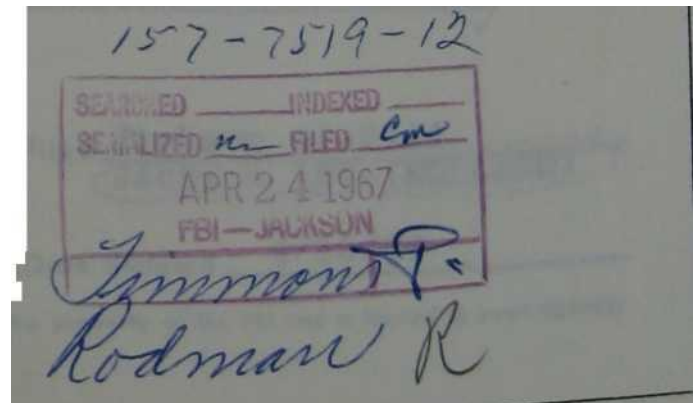 157-7519-12
SEARCHED INDEXED
SERIALIZED FILED Cm
APR 24 1967
FBI—JACKSON
Timmons
Rodman R